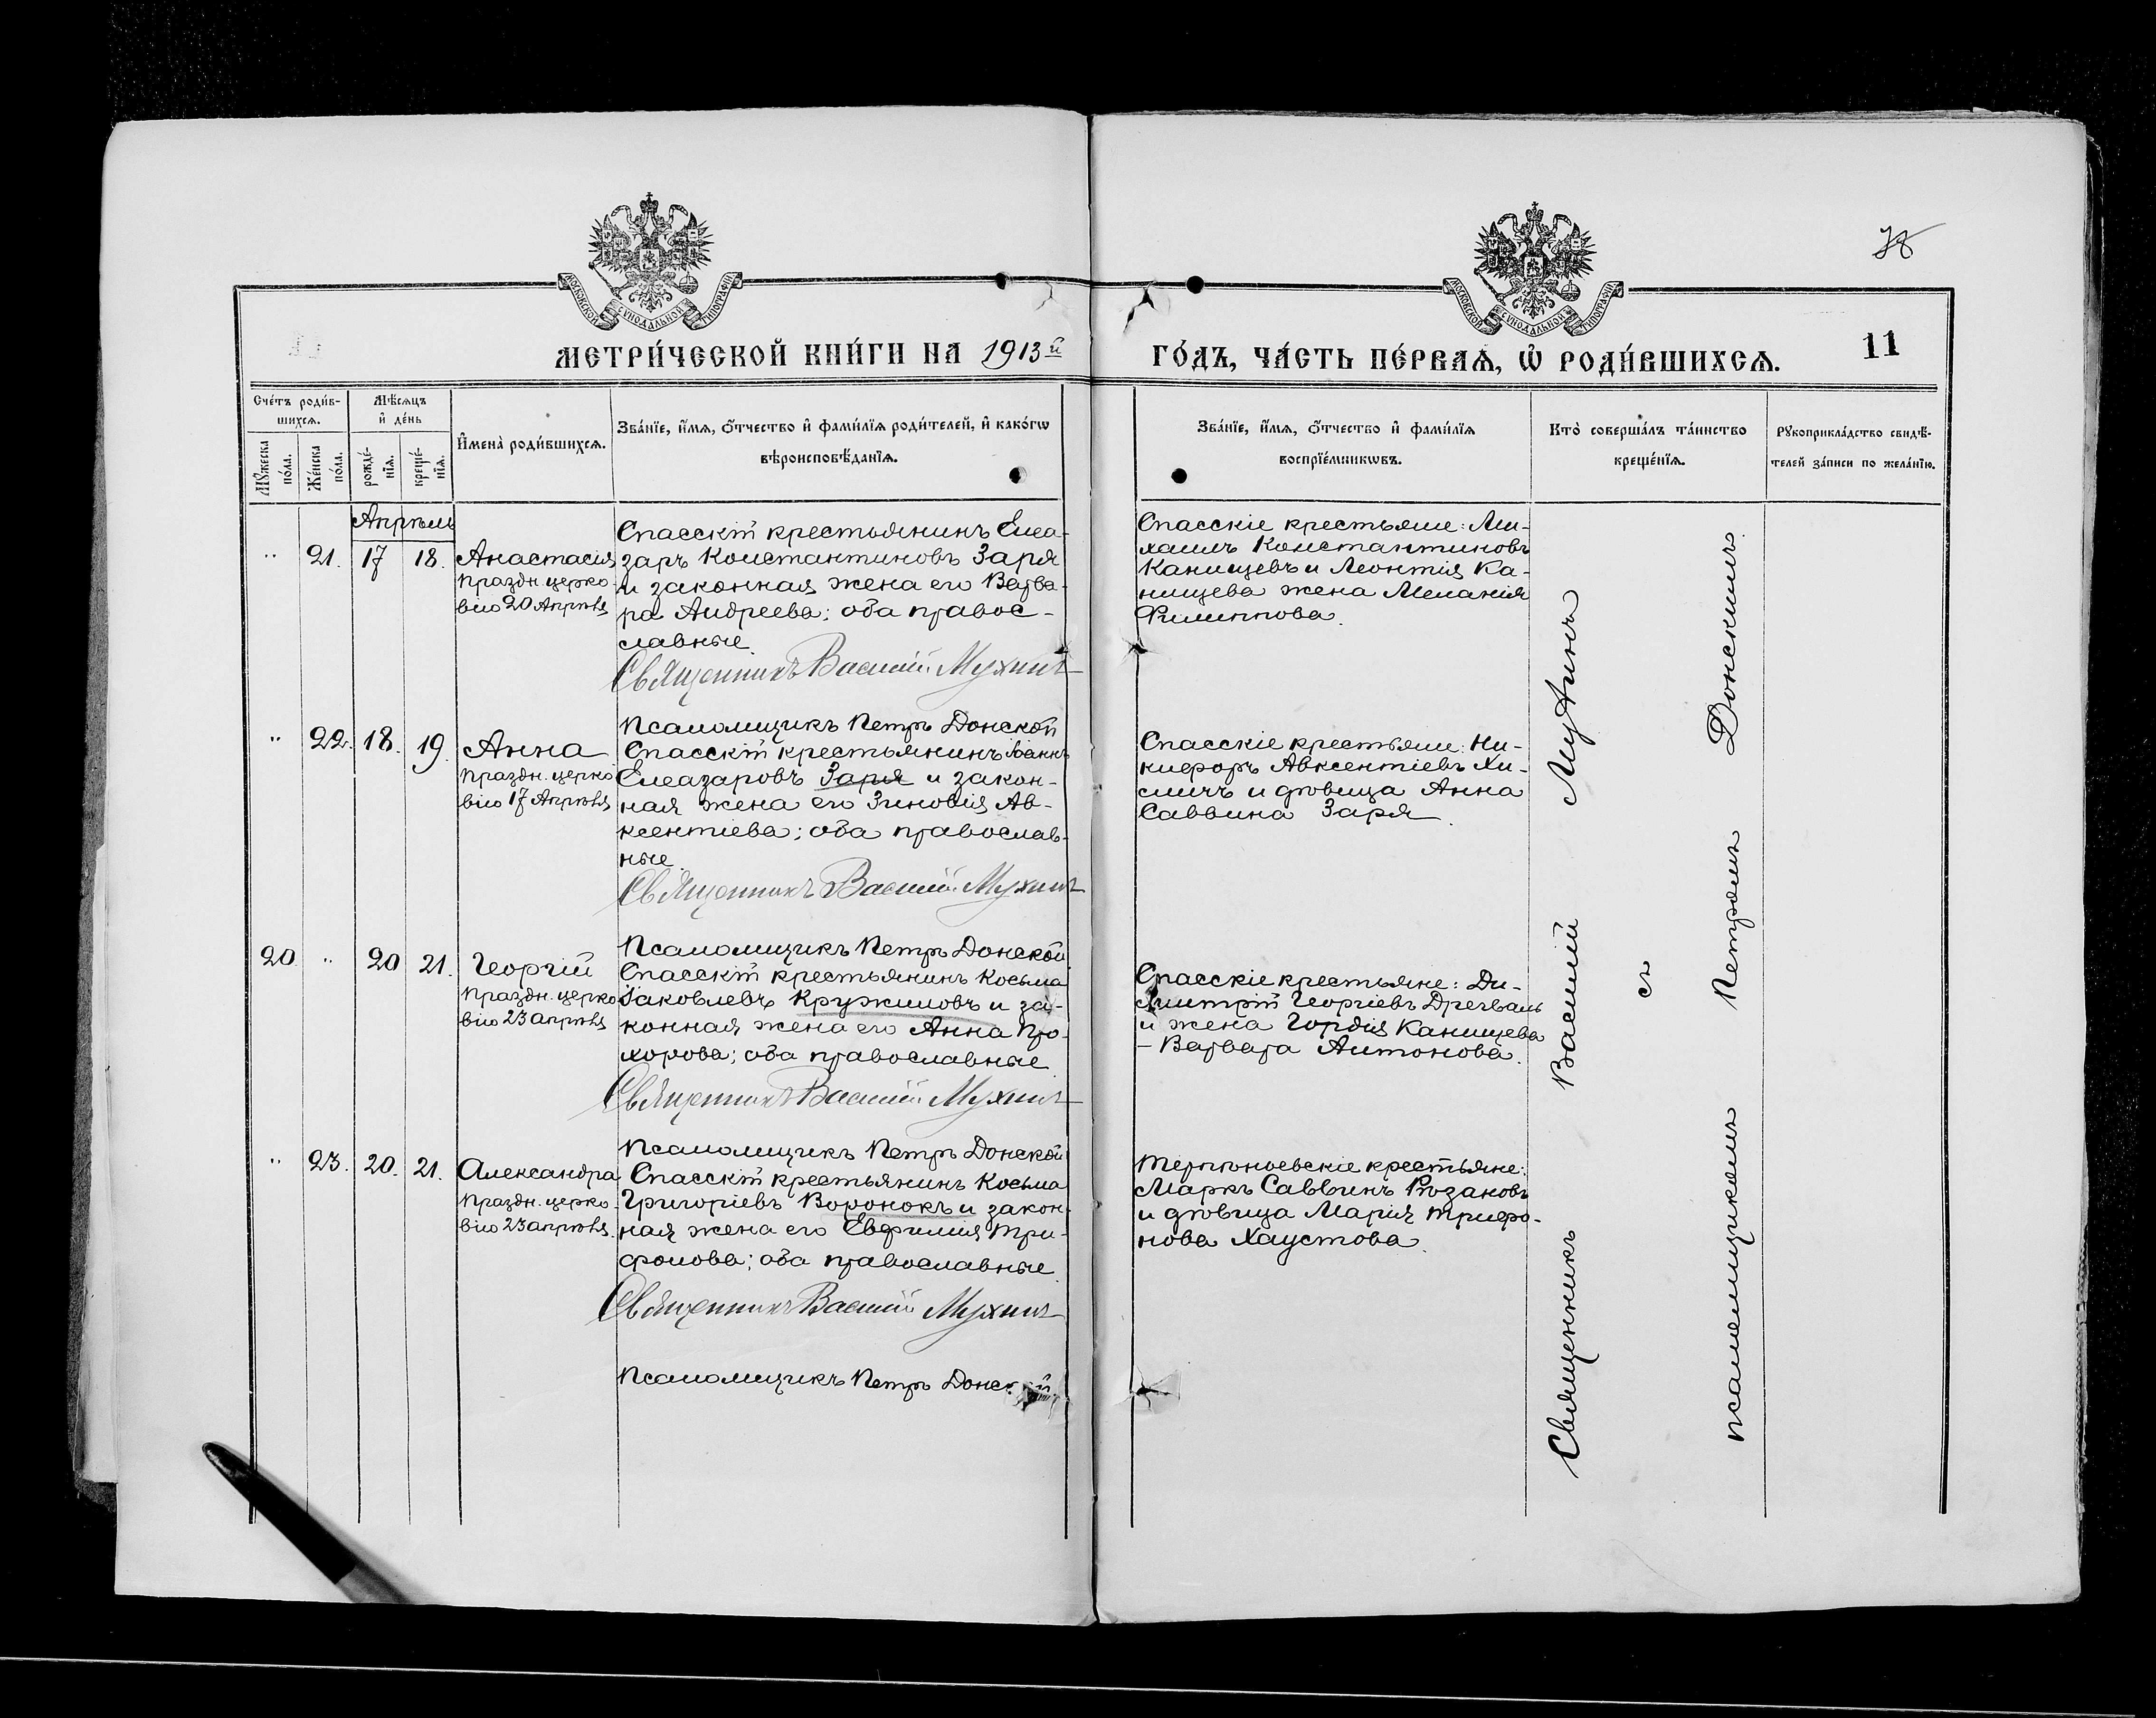 78
МОСКОВСКОЙ СѴНОДАЛЬНОЙ ТИПОГРАФІИ
МОСКОВСКОЙ СѴНОДАЛЬНОЙ ТИПОГРАФІИ
МЕТРИ́ЧЕСКОЙ КНИ́ГИ НА 1913й
ГО́ДЪ, ЧА́СТЬ ПЕ́РВАѦ, Ѡ҆ РОДИ́ВШИХСѦ.
11
Сче́тъ роди́в-
шихсѧ.
Мꙋ́жеска по́ла.
Же́нска по́ла.
Мѣ́сѧцъ
и҆ де́нь
рожде́-
нїѧ.
креще́-
нїѧ.
И҆мена̀ роди́вшихсѧ.
Зва́нїе, и҆́мѧ, ѻ҆́тчество и҆ фами́лїѧ роди́телей, и҆ како́гѡ
вѣроисповѣ́данїѧ.
Зва́нїе, и҆́мѧ, ѻ҆́тчество и҆ фами́лїѧ
воспрїе́мникѡвъ.
Кто̀ соверша́лъ та́инство
креще́нїѧ.
Рꙋкоприкла́дство свидѣ́-
телей за́писи по жела́нїю.
Апрѣль
" 21. 17 18. Анастасія
Праздн. церко-
вію 20 Апрѣля
Спасскій крестьянинъ Елеа-
заръ Константиновъ Заря
и законная жена его Варва-
ра Андреева; оба правос-
славные.
Священникъ Василій Мухинъ
Псаломщикъ Петръ Донской
Спасскіе крестьяне: Ми-
хаилъ Константиновъ
Канищевъ и Леонтія Ка-
нищева жена Меланія
Филиппова.
" 22. 18. 19. Анна
Праздн. церко-
вію 17 Апрѣля
Спасскій крестьянинъ Іоаннъ
Елеазаровъ Заря и закон-
ная жена его Зиновія Ав-
ксентіева; оба православ-
ные.
Священникъ Василій Мухинъ
Псаломщикъ Петръ Донской
Спасскіе крестьяне: Ни-
кифоръ Авксентіевъ
и дѣвица Анна
Саввина Заря.
20 " 20 21. Георгій
Праздн. церко-
вію 23 апрѣля
Спасскій крестьянинъ Косьма
Іаковлевъ Кружиловъ и за-
конная жена его Анна Про-
хорова; оба православные.
Священникъ Василій Мухинъ
Псаломщикъ Петръ Донской
Спасскіе крестьяне: Ди-
митрій Георгіевъ
и жена Гордія Канищева
- Варвара Антонова.
" 23. 20. 21. Александра
Праздн. церко-
вію 23 апрѣля.
Спасскій крестьянинъ Косьма
Григоріевъ Воронокъ и закон-
ная жена его Евфимія Три-
фонова; оба православные.
Священникъ Василій Мухинъ
Псаломщикъ Петръ Донской
крестьяне:
Маркъ Саввинъ Розановъ
и дѣвица Марія Трифо-
нова Хаустова.
Священникъ Василій Мухинъ
съ
псаломщикомъ Петромъ Донскимъ.